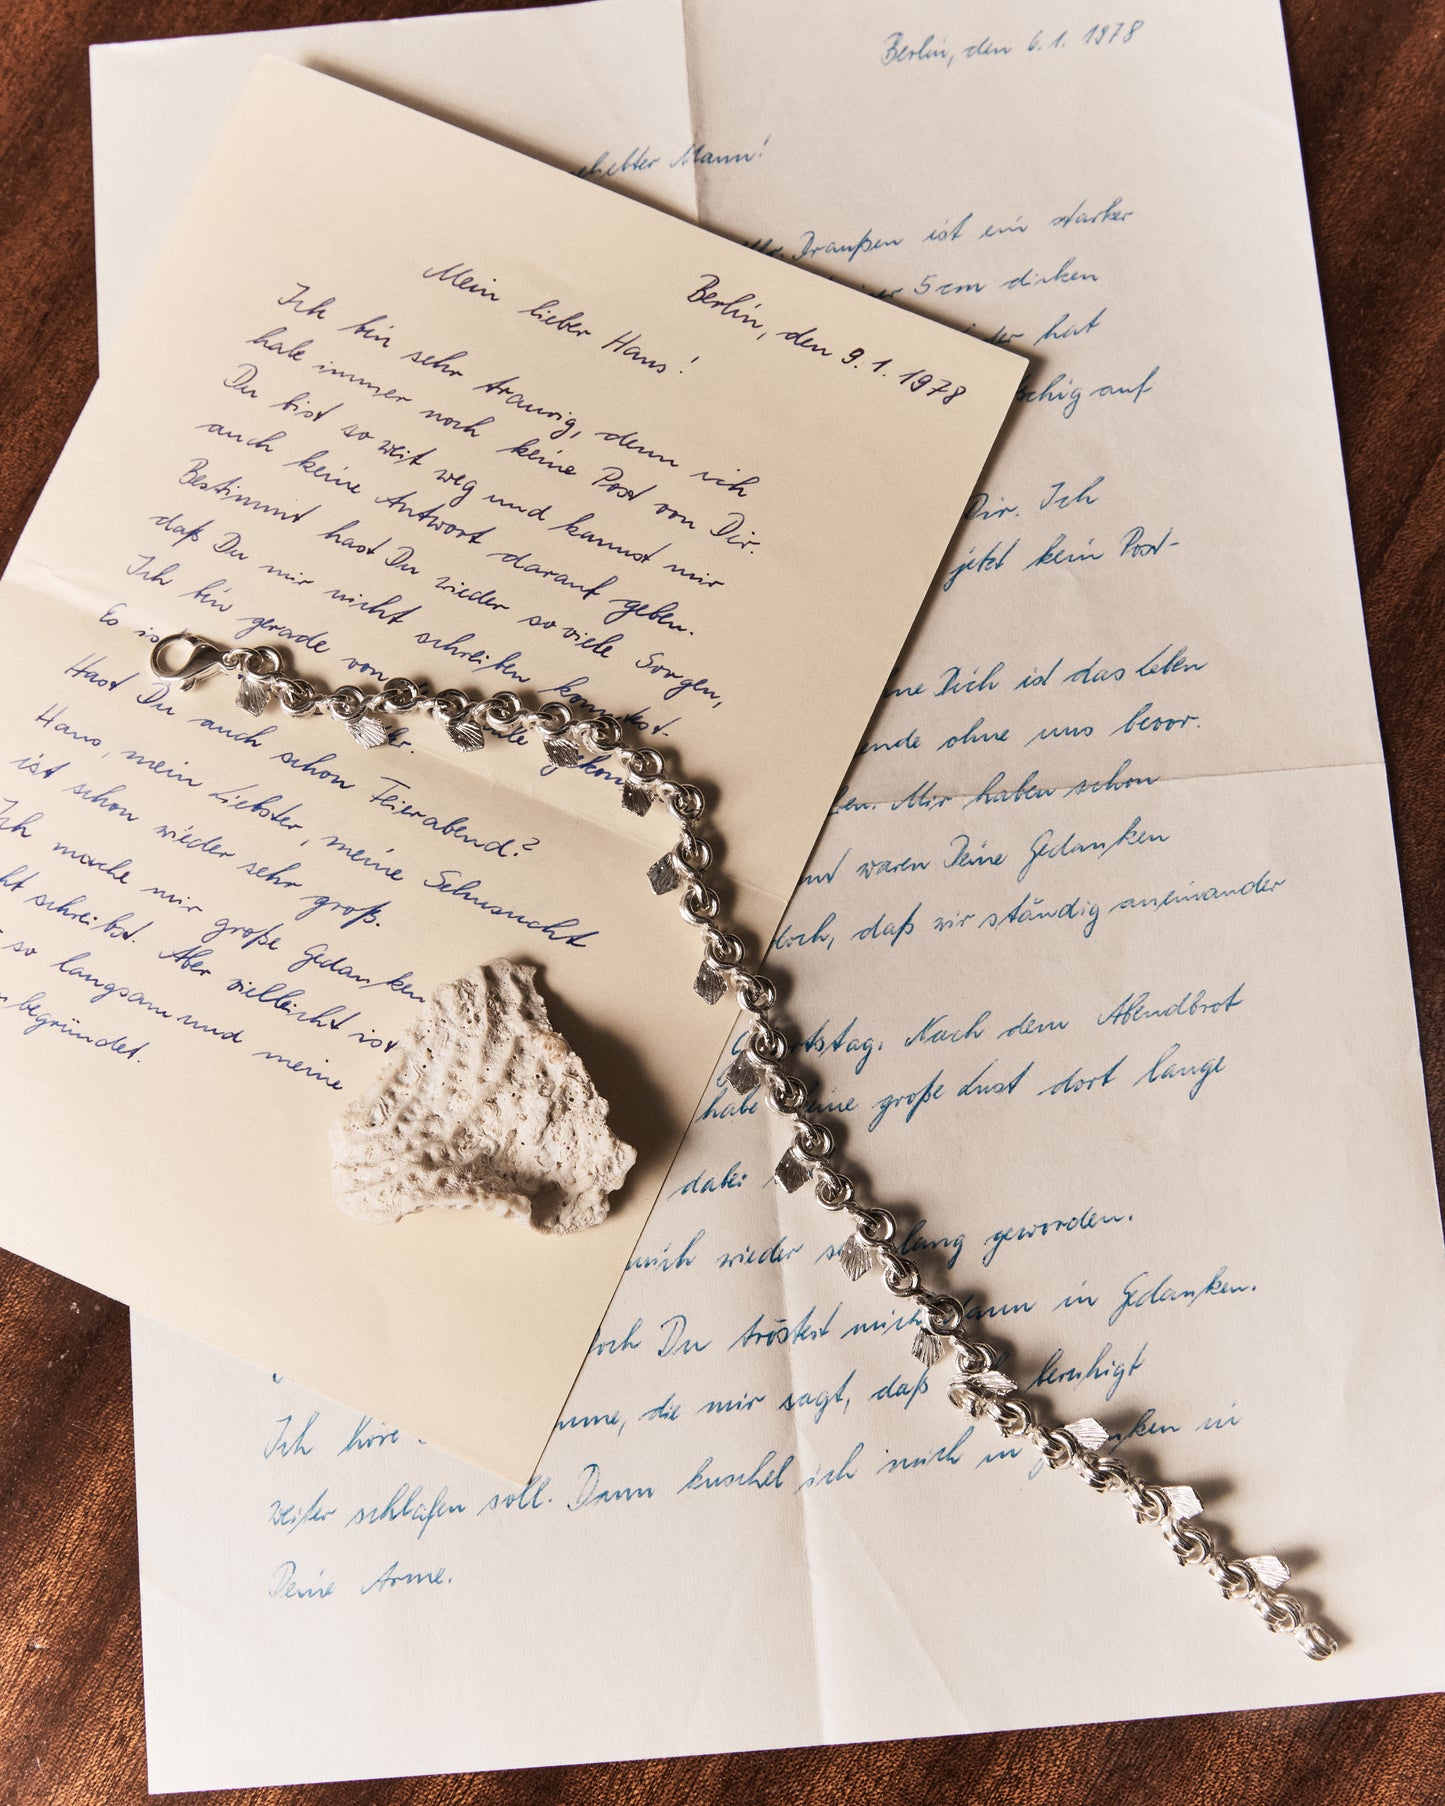 Berlin, den 9. 1. 1978
Mein lieber Hans!
Ich bin sehr traurig, denn ich
habe immer noch keine Post von Dir.
Du bist so weit weg und kannst mir
auch keine Antwort darauf geben.
Bestimmt hast Du wieder so viele Sorgen,
daß Du mir nicht schreiben konntest.
Ich bin gerade von
Es
Hast Du auch schon Feierabend?
Hans, mein Liebster, meine Sehnsucht
ist schon wieder sehr groß.
Ich mache mir große Gedanken
schreibst. Aber vielleicht ist
so langsam und meine
begründet.
Berlin, den 6. 1. 1978
Mann!
Draußen ist ein starker
5 cm dicken
hat
auf
Dir. Ich
jetzt kein Post-
Dich ist das Leben
ohne uns bevor.
Wir haben schon
waren Deine Gedanken
daß wir ständig aneinander
Nach dem Abendbrot
habe große Lust dort lange
dabei
mich wieder lang geworden.
Du tröstest mich dann in Gedanken.
Ich höre die mir sagt, daß beruhigt
weiter schlafen soll. Dann kuschel ich mich in in
Deine